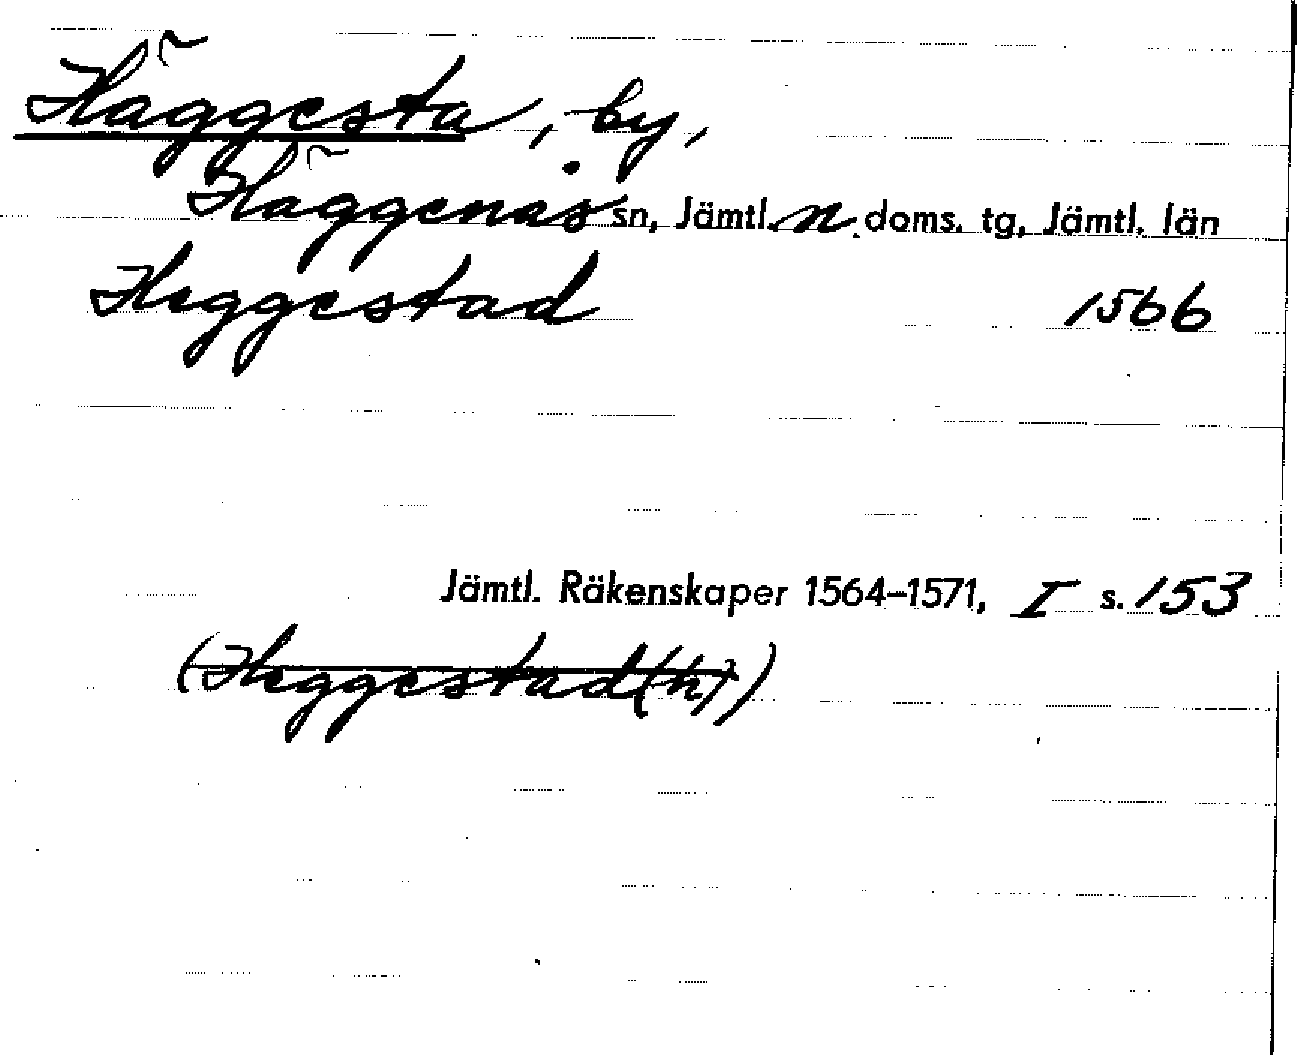 Häggesta, by,
Häggenås sn, Jämtl. n. doms. tg, Jämtl. län
Heggestad 1566
Jämtl. Räkenskaper 1564–1571, I s. 153
(Heggestad (h))